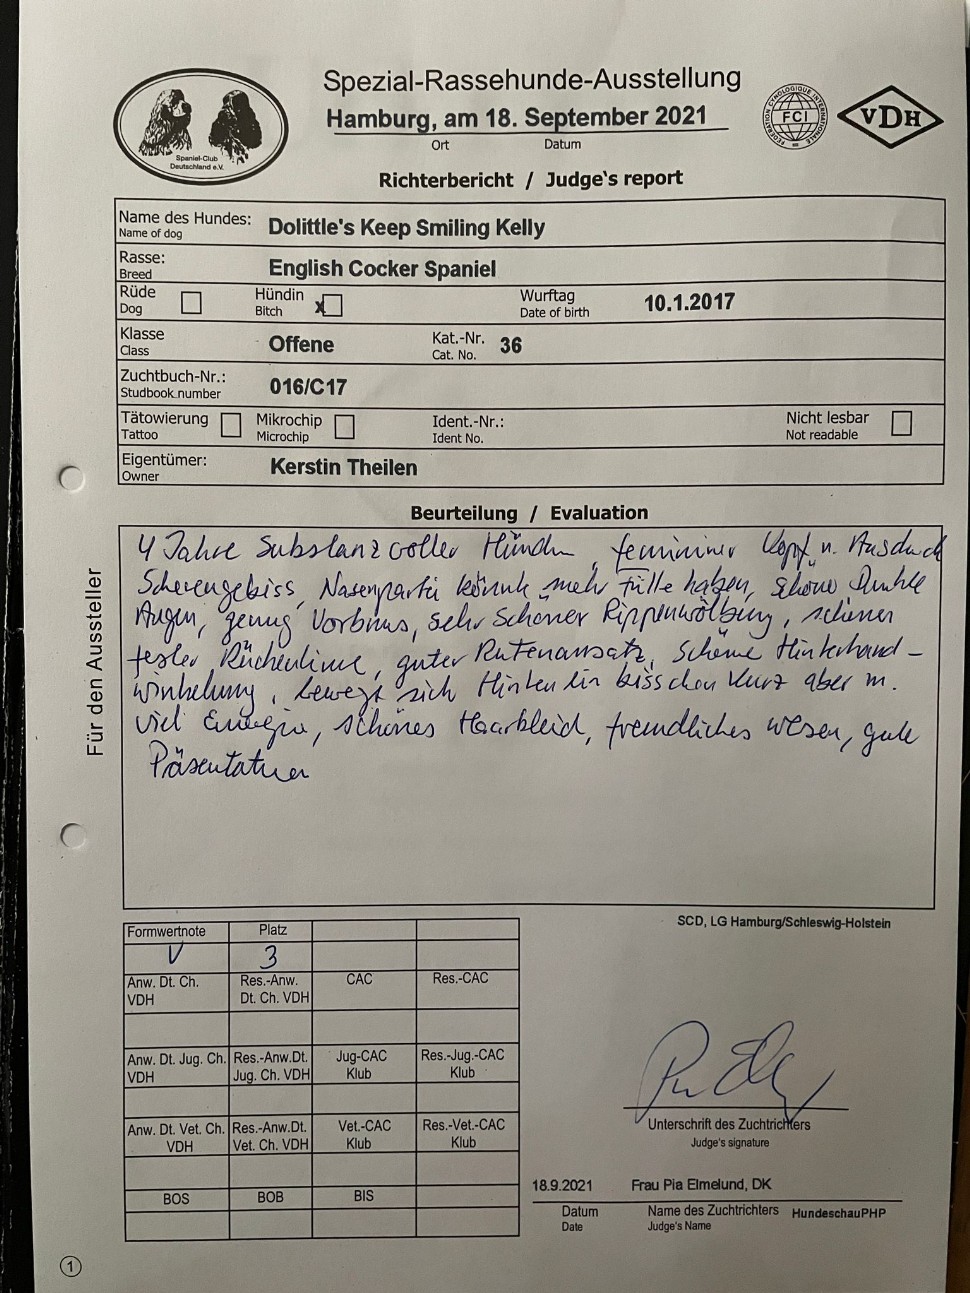 Spezial-Rassehunde-Ausstellung
Hamburg, am 18. September 2021
Ort Datum
Spaniel-Club
Deutschland e.V.
FEDERATION CYNOLOGIQUE INTERNATIONALE
FCI
VDH
Richterbericht / Judge's report
Name des Hundes: Dolittle's Keep Smiling Kelly
Name of dog
Rasse: English Cocker Spaniel
Breed
Rüde Hündin Wurftag 10.1.2017
Dog Bitch x Date of birth
Klasse Offene Kat.-Nr. 36
Class Cat. No.
Zuchtbuch-Nr.: 016/C17
Studbook number
Tätowierung Mikrochip Ident.-Nr.: Nicht lesbar
Tattoo Microchip Ident No. Not readable
Eigentümer: Kerstin Theilen
Owner
Beurteilung / Evaluation
Für den Aussteller
4 Jahre Substanzvoller Hündin, femininer Kopf u. Ausdruck
Scherengebiss, Nasenpartie könnte mehr Fülle haben, schöne Dunkle
Augen, genug Vorbrust, sehr schöner Rippenwölbung, schöner
fester Rückenlinie, guter Rutenansatz, schöne Hinterhand-
winkelung, bewegt sich Hinten ein bisschen kurz aber m.
viel Energie, schönes Haarkleid, freundliches wesen, gute
Päsentation
SCD, LG Hamburg/Schleswig-Holstein
Formwertnote Platz
V 3
Anw. Dt. Ch. VDH Res.-Anw. Dt. Ch. VDH CAC Res.-CAC
Anw. Dt. Jug. Ch. VDH Res.-Anw.Dt. Jug. Ch. VDH Jug-CAC Klub Res.-Jug.-CAC Klub
Anw. Dt. Vet. Ch. VDH Res.-Anw.Dt. Vet. Ch. VDH Vet.-CAC Klub Res.-Vet.-CAC Klub
BOS BOB BIS
Unterschrift des Zuchtrichters
Judge's signature
18.9.2021 Frau Pia Elmelund, DK
Datum Name des Zuchtrichters HundeschauPHP
Date Judge's Name
1